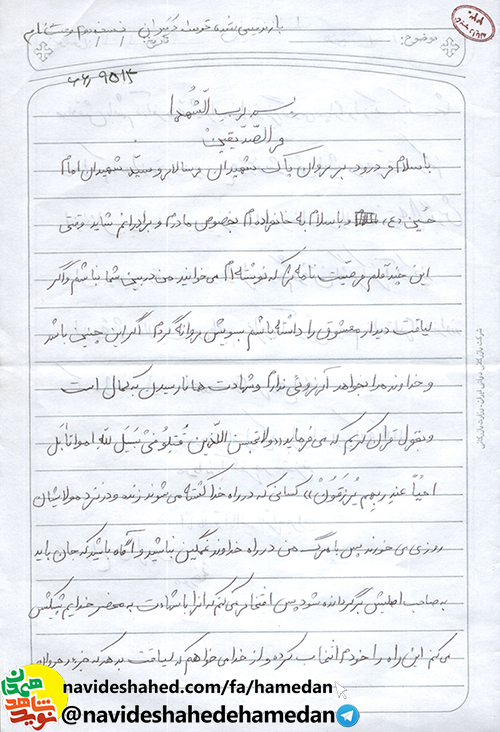 موضوع:
تاریخ:
بسم رب الشهدا
و الصدیقین
با سلام و درود بر روان پاک شهیدان و سالار و سید شهیدان امام
حسین (ع) و با سلام به خانواده ام بخصوص مادرم و برادرانم شاید وقتی
این چند قلم وصیت نامه را که نوشته ام می خوانید من در بین شما نباشم و اگر
لیاقت دیدار معشوق را داشته باشم سویش روانه گردم اگر این چنین باشد
و خداوند مرا بخواهد آرزوئی ندارم و شهادت همانا رسیدن به کمال است
و بقول قرآن کریم که می فرماید «ولا تحسبن اللذین قتلو فی سبیل لله امواتا بل
احیاً عند ربهم یرزقون» کسانی که در راه خدا کشته می شوند زنده و در نزد مولایشان
روزی می خورند پس با مرگ من در راه خداوند غمگین نباشید و آگاه باشید که جان باید
به صاحب اصلیش برگردانده شود پس افتخار می کنم که آنرا با شهادت به محضر خدایم پیشکش
می کنم این راه را خودم انتخاب کرده و از خدا می خواهم که لیاقت بدهد که
نوید شاهد همدان
navideshahed.com/fa/hamedan
@navideshahedehamedan